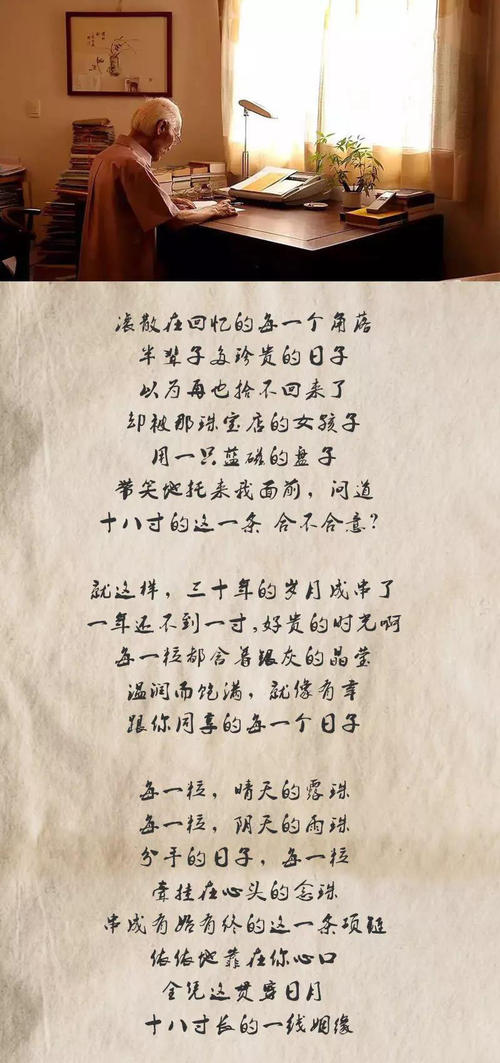 滚散在回忆的每一个角落
半辈子多珍贵的日子
以为再也拾不回来了
却被那珠宝店的女孩子
用一只蓝磁的盘子
带笑地托来我面前，问道
十八寸的这一条 合不合意？
就这样，三十年的岁月成串了
一年还不到一寸，好贵的时光啊
每一粒都含着银灰的晶莹
温润而饱满，就像有幸
跟你同享的每一个日子
每一粒，晴天的露珠
每一粒，阴天的雨珠
分手的日子，每一粒
牵挂在心头的念珠
串成有始有终的这一条项链
依依地靠在你心口
全凭这贯穿日月
十八寸长的一线姻缘